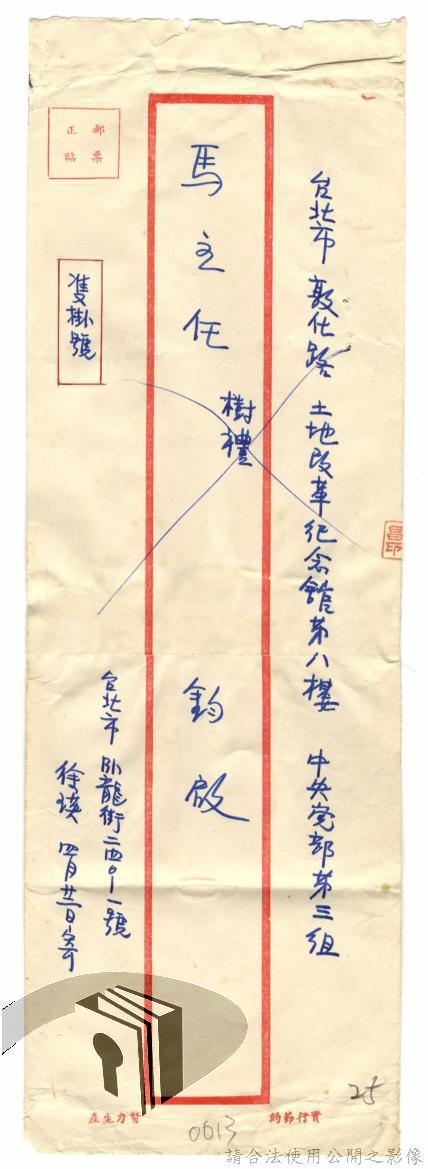 台北市 敦化路 土地改革紀念館第八樓 中央党部第三組
馬主任
樹禮
鈞啟
郵票
正貼
雙掛號
台北市 臥龍街二四〇-一號
徐瑛 四月廿一日寄
昌印
實行節約
努力生產
0613
25
請合法使用公開之影像